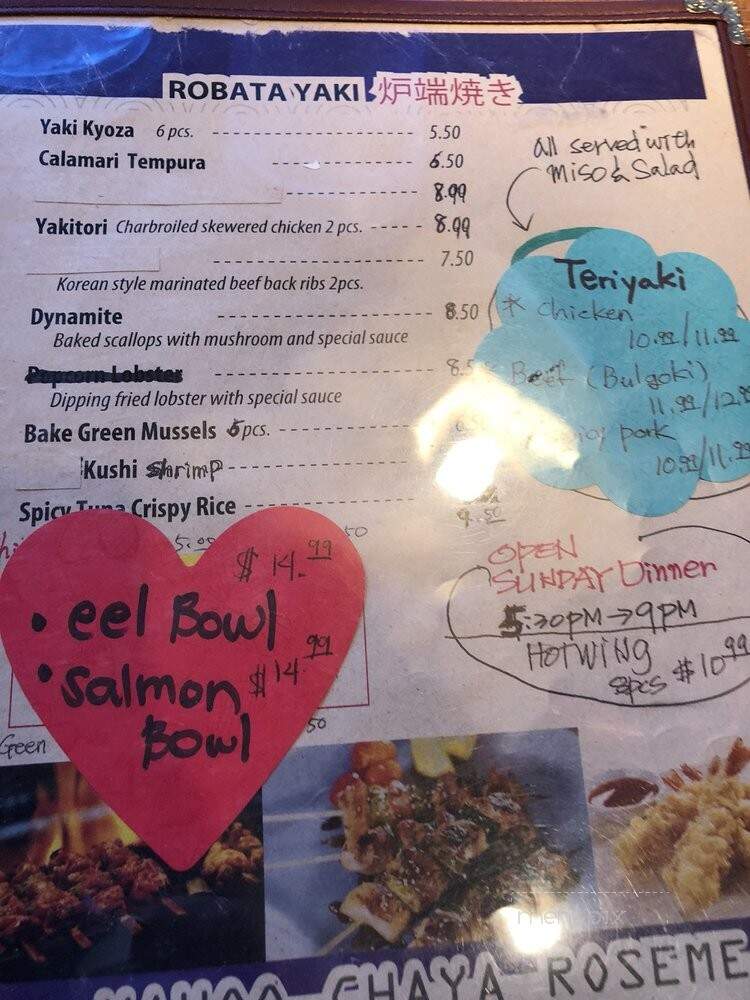 ROBATA YAKI 炉端焼き
Yaki Kyoza 6 pcs. 5.50
Calamari Tempura 6.50
8.99
Yakitori Charbroiled skewered chicken 2 pcs. 8.99
7.50
Korean style marinated beef back ribs 2pcs.
Dynamite 8.50
Baked scallops with mushroom and special sauce
Popcorn Lobster 8.5
Dipping fried lobster with special sauce
Bake Green Mussels 5pcs.
Kushi Shrimp
Spicy Tuna Crispy Rice 9.50
5.99
50
$14.99
• eel Bowl
• Salmon $14.99
Bowl
50
Green
All served with
Miso & Salad
Teriyaki
* Chicken
10.99/11.99
Beef (Bulgoki)
11.99/12.9
pork
10.99/11.99
OPEN
SUNDAY Dinner
5:30PM → 9PM
HOTWING
8pcs $10.99
menupix
CHAYA ROSEME